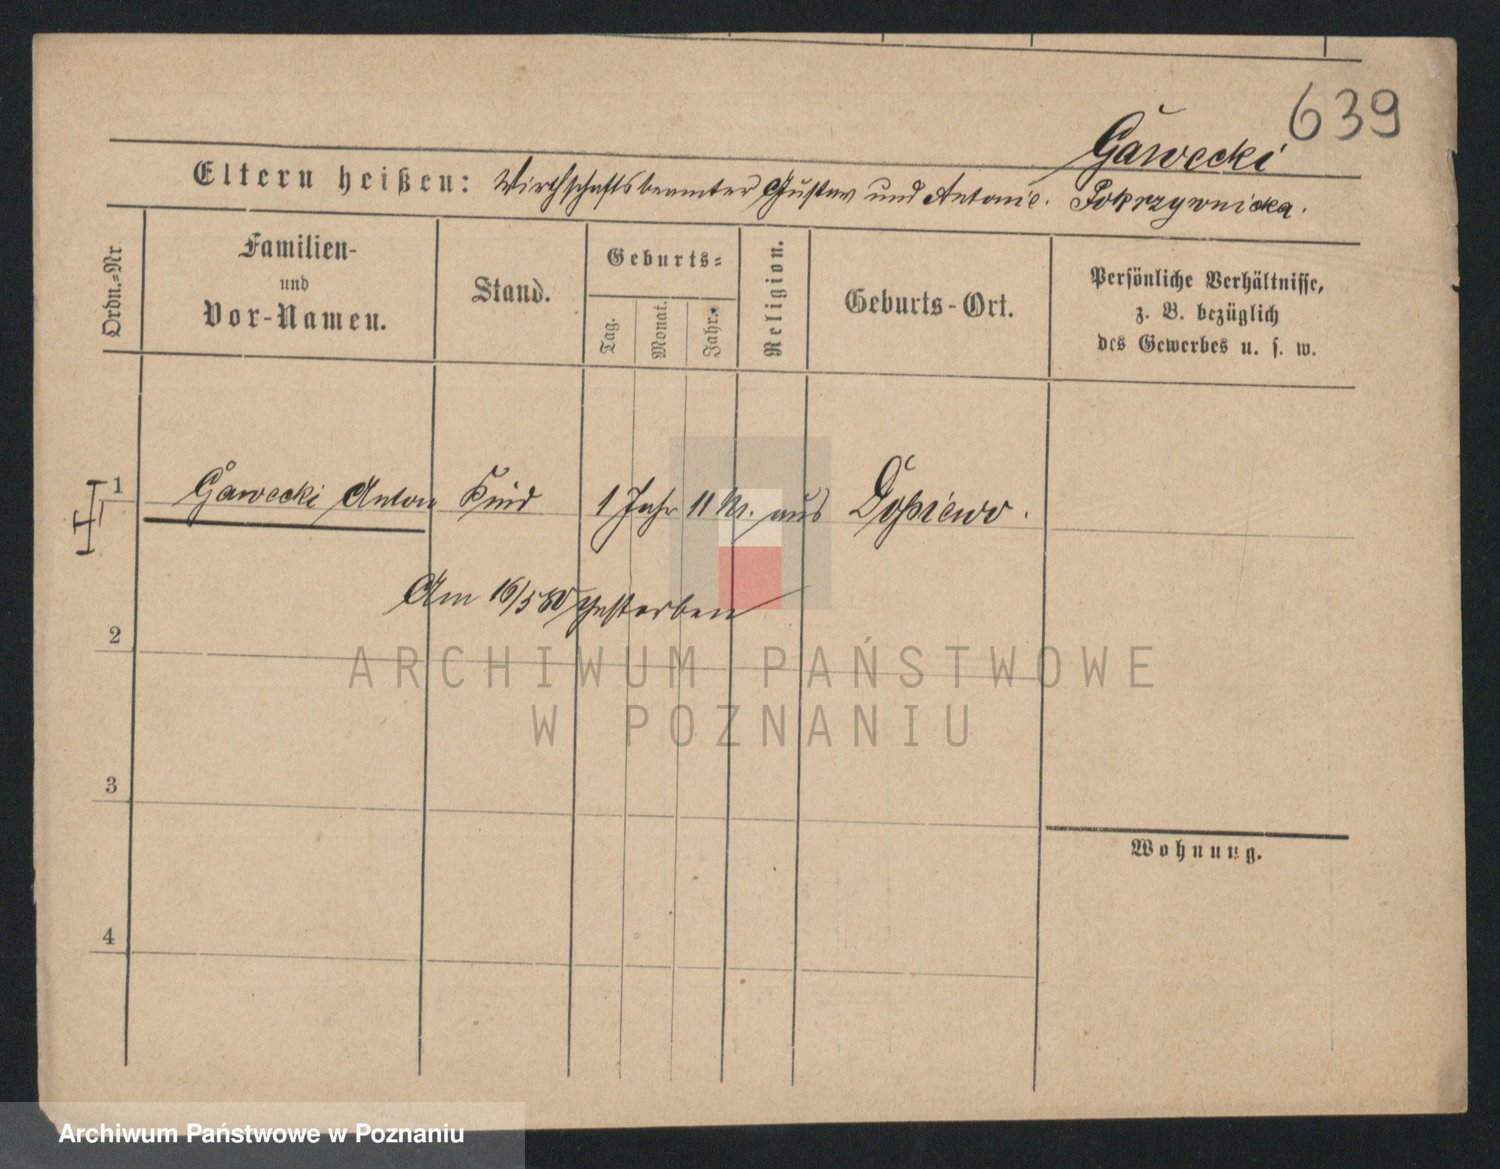 639
Gawecki
Eltern heißen: Wirthschaftsbeamter Gustav und Antonie. Pokrzywnicka.
Ordn.-Nr.
Familien-
und
Vor-Namen.
Stand.
Geburts-
Tag.
Monat.
Jahr.
Religion.
Geburts-Ort.
Persönliche Verhältnisse,
z. B. bezüglich
des Gewerbes u. s. w.
1 Gawecki Anton Kind 1 Jahr 11 M. aus Dopiewo.
Am 16/5 80 gestorben
2
ARCHIWUM PAŃSTWOWE
W POZNANIU
3
Wohnung.
4
Archiwum Państwowe w Poznaniu